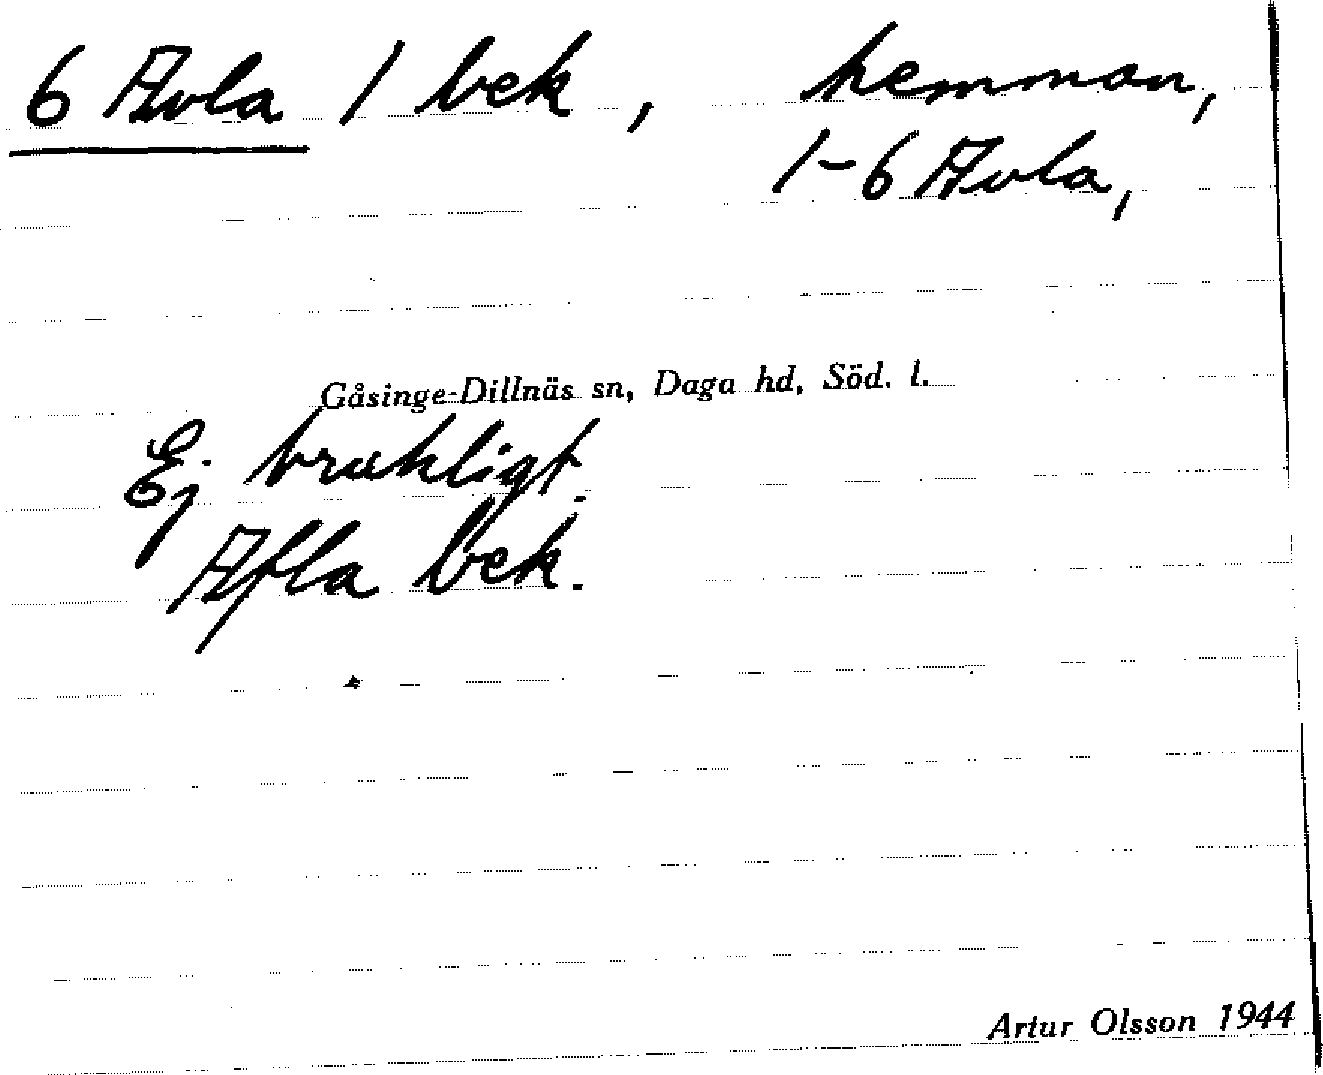 6 Avla / bek, hemman,
1-6 Avla,
Gåsinge-Dillnäs sn, Daga hd, Söd. l.
Ej brukligt.
Afla bek.
Artur Olsson 1944